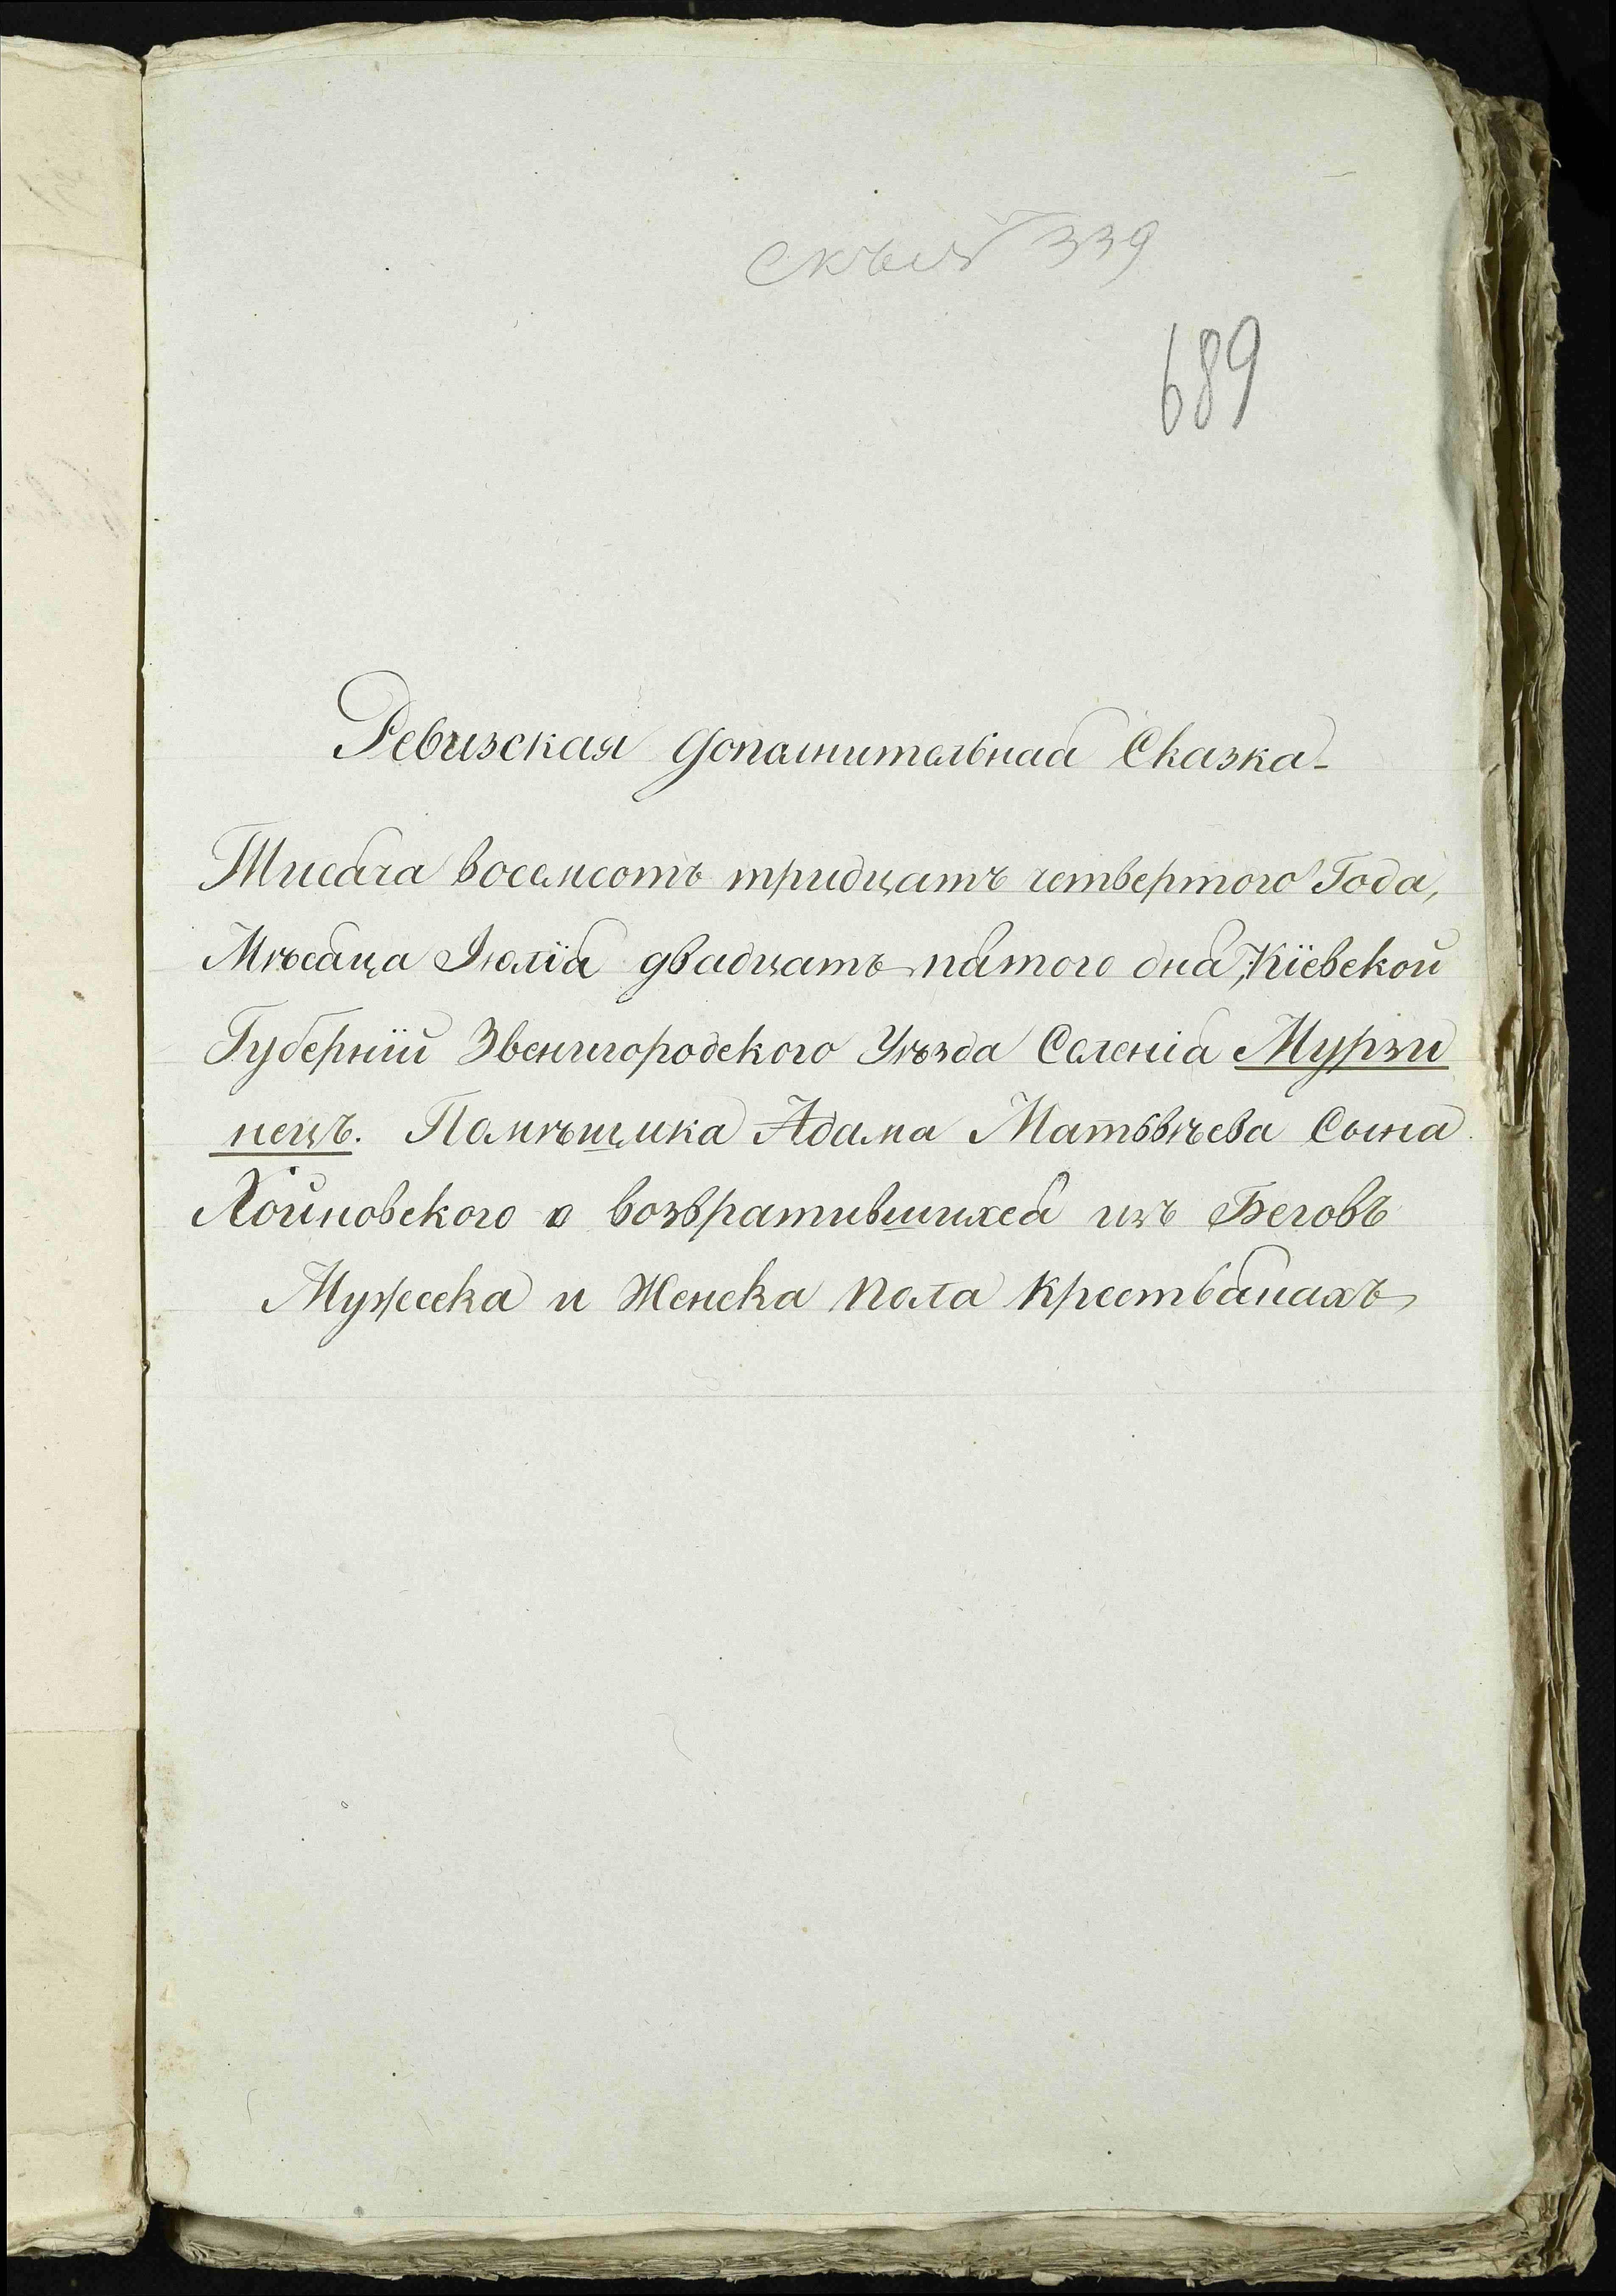 339
689
Ревизская дополнительная Сказка-
Тисяча восемсотъ тридцатъ четвертого Года,
Мѣсяца Іюлія двадцатъ пятого дня, Кіевской
Губерніи Звенигородского Уѣзда Селенія Мурзи
нецъ. Помѣщика Адама Матвѣева Сына
Хойновского о возвратившихся изъ Беговъ
Мужеска и Женска Пола Крестьянахъ